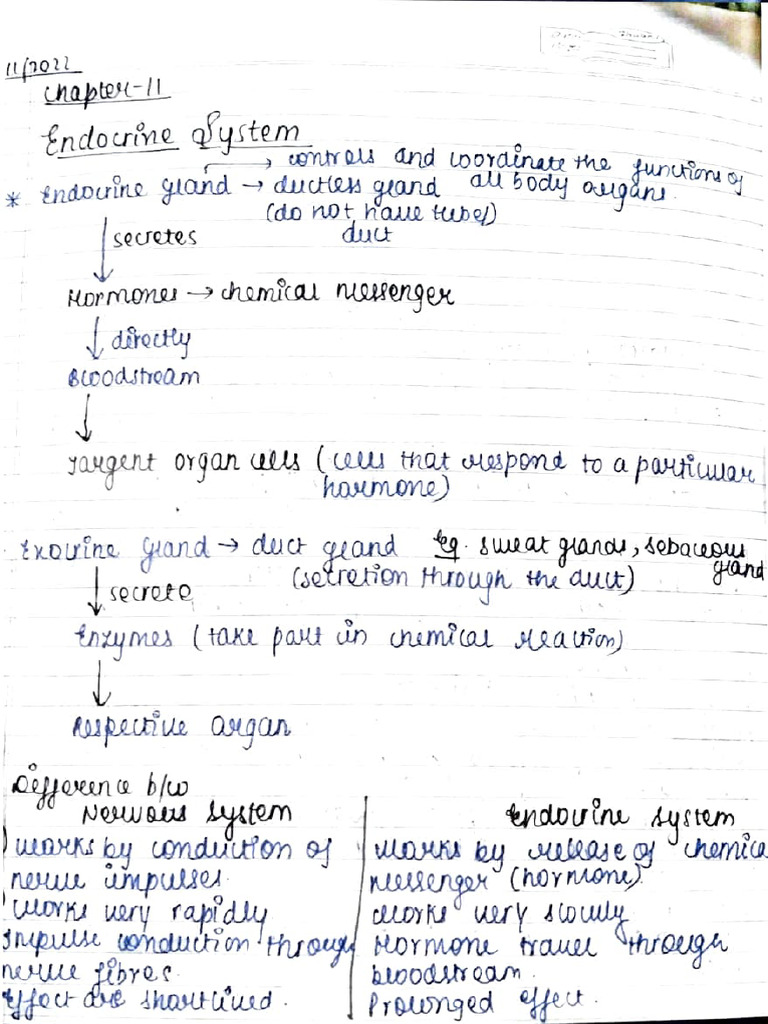 11/2022
Chapter-11
Endocrine System
→ controls and coordinate the functions of
* Endocrine gland → ductless gland all body organs.
(do not have tubes)
duct
↓ secretes
Hormones → chemical messenger
↓ directly
Bloodstream
↓
Targent organ cells (cells that respond to a particular
harmone)
Exocrine gland → duct gland Eg. sweat glands, sebaceous
gland
(secretion through the duct)
↓ secrete
Enzymes (take part in chemical reaction)
↓
Respective organ
Difference b/w
Nervous system | Endocrine system
works by conduction of | works by release of chemica
nerve impulses. | messenger (hormone).
works very rapidly | works very slowly
Impulse conduction through | Hormone travel through
nerve fibres. | bloodstream.
Effect are shortlived. | Prolonged effect.